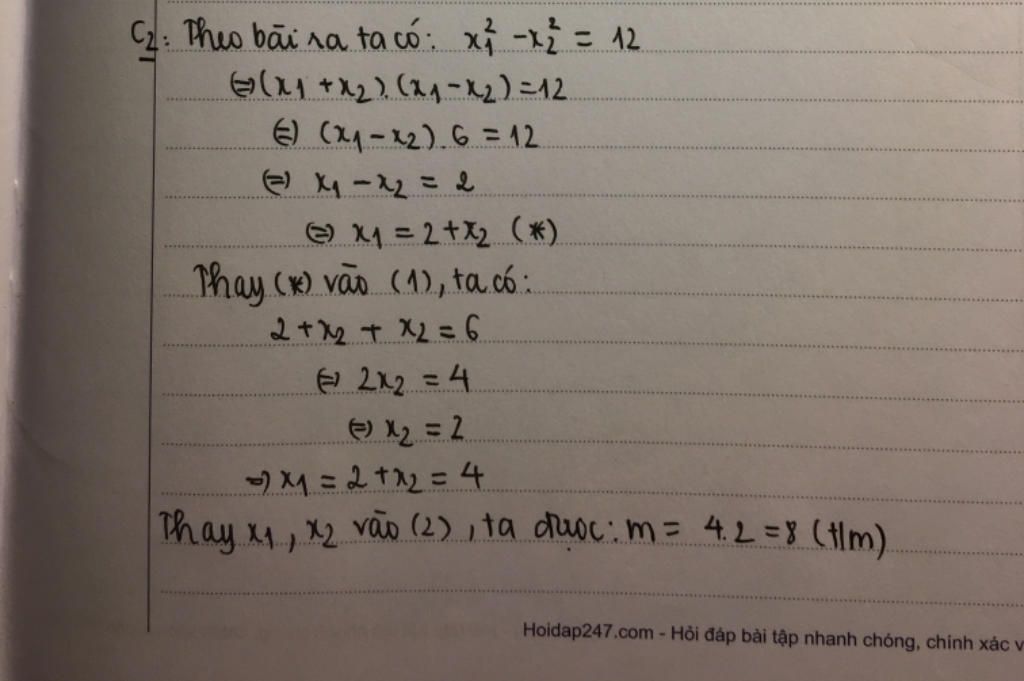 C2: Theo bài ra ta có: x₁² - x₂² = 12
⇔ (x₁ + x₂).(x₁ - x₂) = 12
⇔ (x₁ - x₂).6 = 12
⇔ x₁ - x₂ = 2
⇔ x₁ = 2 + x₂ (*)
Thay (*) vào (1), ta có:
2 + x₂ + x₂ = 6
⇔ 2x₂ = 4
⇔ x₂ = 2
⇒ x₁ = 2 + x₂ = 4
Thay x₁, x₂ vào (2), ta được: m = 4.2 = 8 (t/m)
Hoidap247.com - Hỏi đáp bài tập nhanh chóng, chính xác v